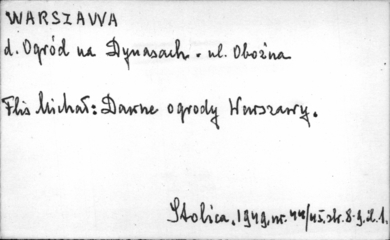 WARSZAWA
d. Ogród na Dynasach. ul. Oboźna
Flis Michał: Dawne ogrody Warszawy.
Stolica, 1949, nr. 44/45, str. 8-9, il. 1.